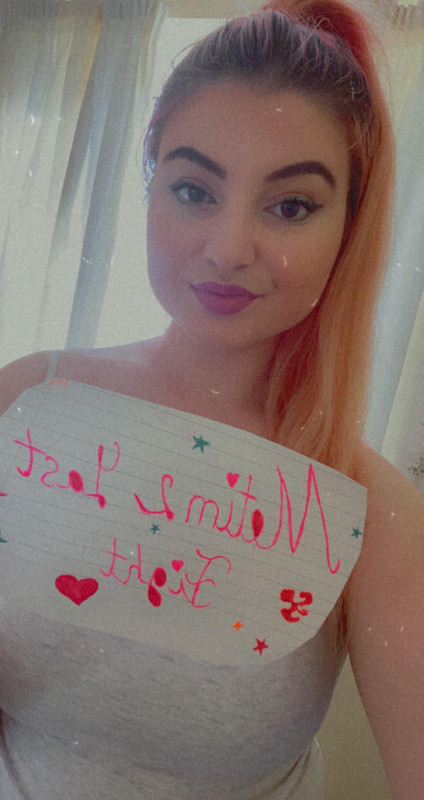 Metin 2 Last
Fight